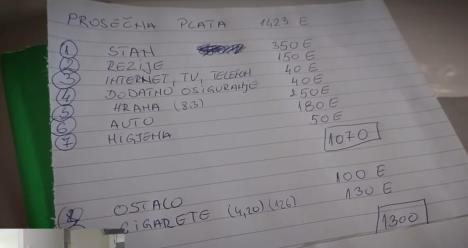 PROSEČNA PLATA 1423 E
1 STAN 350 E
2 REZIJE 150 E
3 INTERNET, TV, TELEFON 40 E
4 DODATNO OSIGURANJE 40 E
5 HRANA (83) 150 E
6 AUTO 180 E
7 HIGIJENA 50 E
1070
8 OSTALO 100 E
CIGARETE (4,20) (126) 130 E
1300